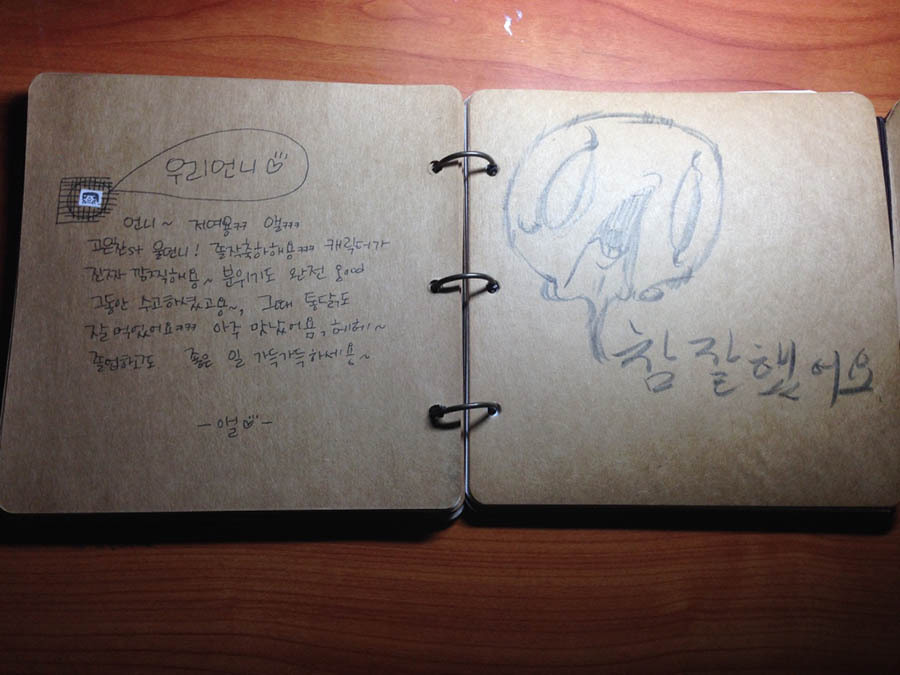 우리언니
언니~ 저여용ㅋㅋ 앨ㅋㅋㅋ
고은찬st 울언니! 졸작축하해용ㅋㅋㅋ 캐릭터가
진짜 깜찍해용~ 분위기도 완전
그동안 수고하셨고용~, 그때 통닭도
잘먹었어요ㅋㅋㅋ 아주 맛났어욤, 헤헤~
졸업하고도 좋은 일 가득가득하세용~
-앨-
참 잘했어요